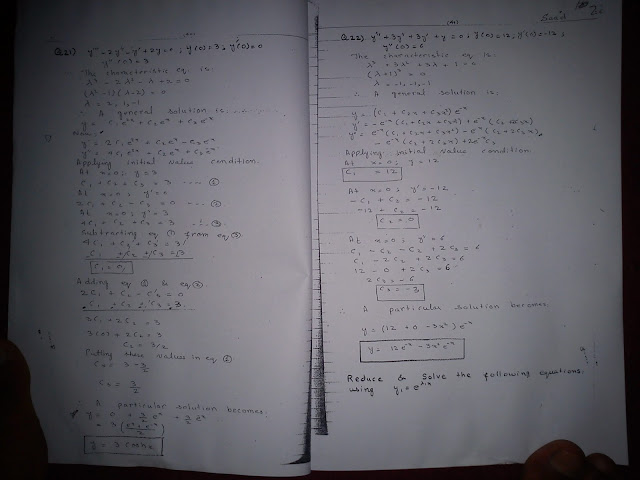 Q.21) y''' - 2y'' - y' + 2y = 0 ; y(0) = 3, y'(0) = 0
y''(0) = 3
The characteristic eq is
λ³ - 2λ² - λ + 2 = 0
(λ² - 1)(λ - 2) = 0
λ = 2, 1, -1
∴ A general solution is
y = C₁e²ˣ + C₂eˣ + C₃e⁻ˣ
Now:
y' = 2C₁e²ˣ + C₂eˣ - C₃e⁻ˣ
y'' = 4C₁e²ˣ + C₂eˣ + C₃e⁻ˣ
Applying initial value condition.
At x=0; y = 3
C₁ + C₂ + C₃ = 3 ---- ①
At x=0; y' = 0
2C₁ + C₂ - C₃ = 0 ---- ②
At x=0; y'' = 3
4C₁ + C₂ + C₃ = 3 ---- ③
Subtracting eq ① from eq ③
4C₁ + C₂ + C₃ = 3
C₁ + C₂ + C₃ = 3
C₁ = 0
Adding eq ① & eq ②
2C₁ + C₂ - C₃ = 0
C₁ + C₂ + C₃ = 3
3C₁ + 2C₂ = 3
3(0) + 2C₂ = 3
C₂ = 3/2
Putting these values in eq ①
C₃ = 3 - 3/2
C₃ = 3/2
∴ A particular solution becomes:
y = 0 + 3/2 eˣ + 3/2
y = 3 coshx
Q.22) y''' + 3y'' + 3y' + y = 0 ; y(0) = 12, y'(0) = -12 ;
y''(0) = 6
The characteristic eq is:
λ³ + 3λ² + 3λ + 1 = 0
(λ+1)³ = 0
λ = -1, -1, -1
∴ A general solution is
y = (C₁ + C₂x + C₃x²) e⁻ˣ
y' = -e⁻ˣ (C₁ + C₂x + C₃x²) + e⁻ˣ (C₂ + 2C₃x)
y'' = e⁻ˣ (C₁ + C₂x + C₃x²) - e⁻ˣ (C₂ + 2C₃x)
- e⁻ˣ (C₂ + 2C₃x) + 2e⁻ˣC₃
Applying initial value condition
At x=0; y = 12
C₁ = 12
At x=0; y' = -12
-C₁ + C₂ = -12
-12 + C₂ = -12
C₂ = 0
At x=0; y'' = 6
C₁ - C₂ - C₂ + 2C₃ = 6
C₁ - 2C₂ + 2C₃ = 6
12 - 0 + 2C₃ = 6
2C₃ = -6
C₃ = -3
∴ A particular solution becomes
y = (12 + 0 - 3x²) e⁻ˣ
y = 12e⁻ˣ - 3x²e⁻ˣ
Reduce & Solve the following equations
using y₁ =